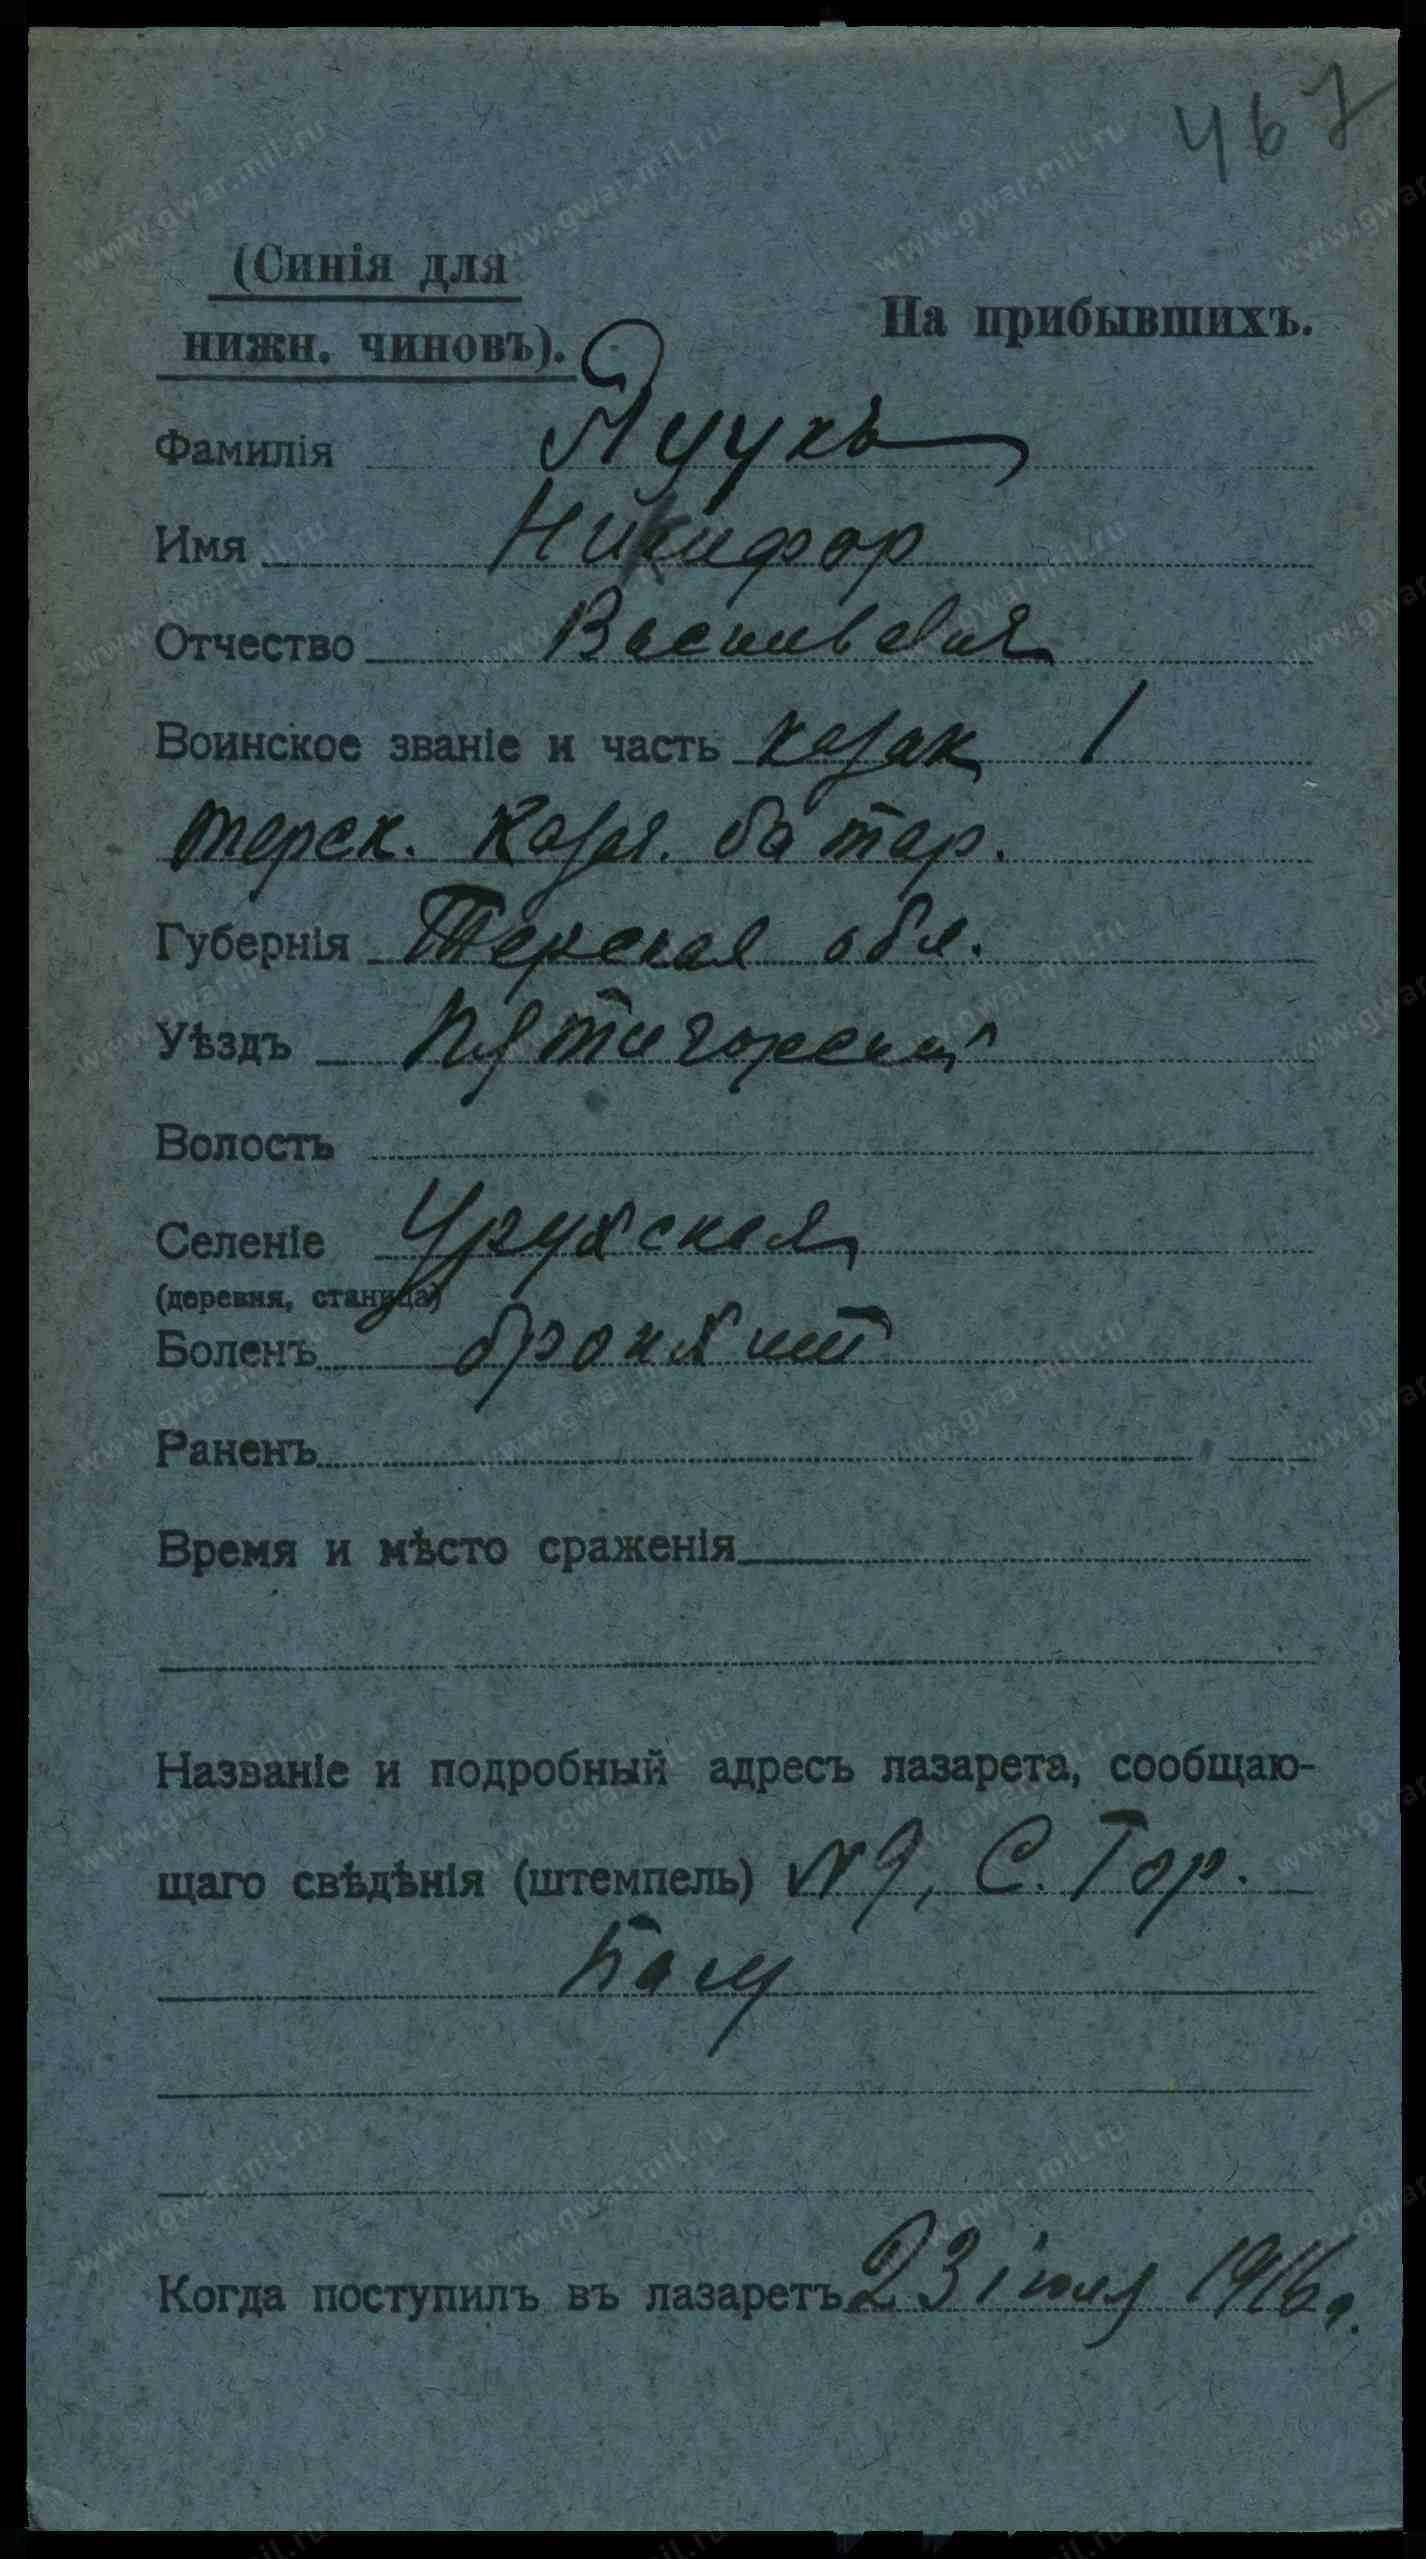 467
(Синія для
нижн. чиновъ).
На прибывшихъ.
Фамилія
Имя Никифор
Отчество Васильевич
Воинское званіе и часть казак 1
терск. Казач. батар.
Губернія Терская обл.
Уѣздъ Пятигорский
Волость
Селеніе Урухская
(деревня, станица)
Боленъ бронхит
Раненъ
Время и мѣсто сраженія
Названіе и подробный адресъ лазарета, сообщаю-
щаго свѣдѣнія (штемпель) № 9, С. Гор.
Когда поступилъ въ лазаретъ 23 іюля 1916 г.
www.gwar.mil.ru